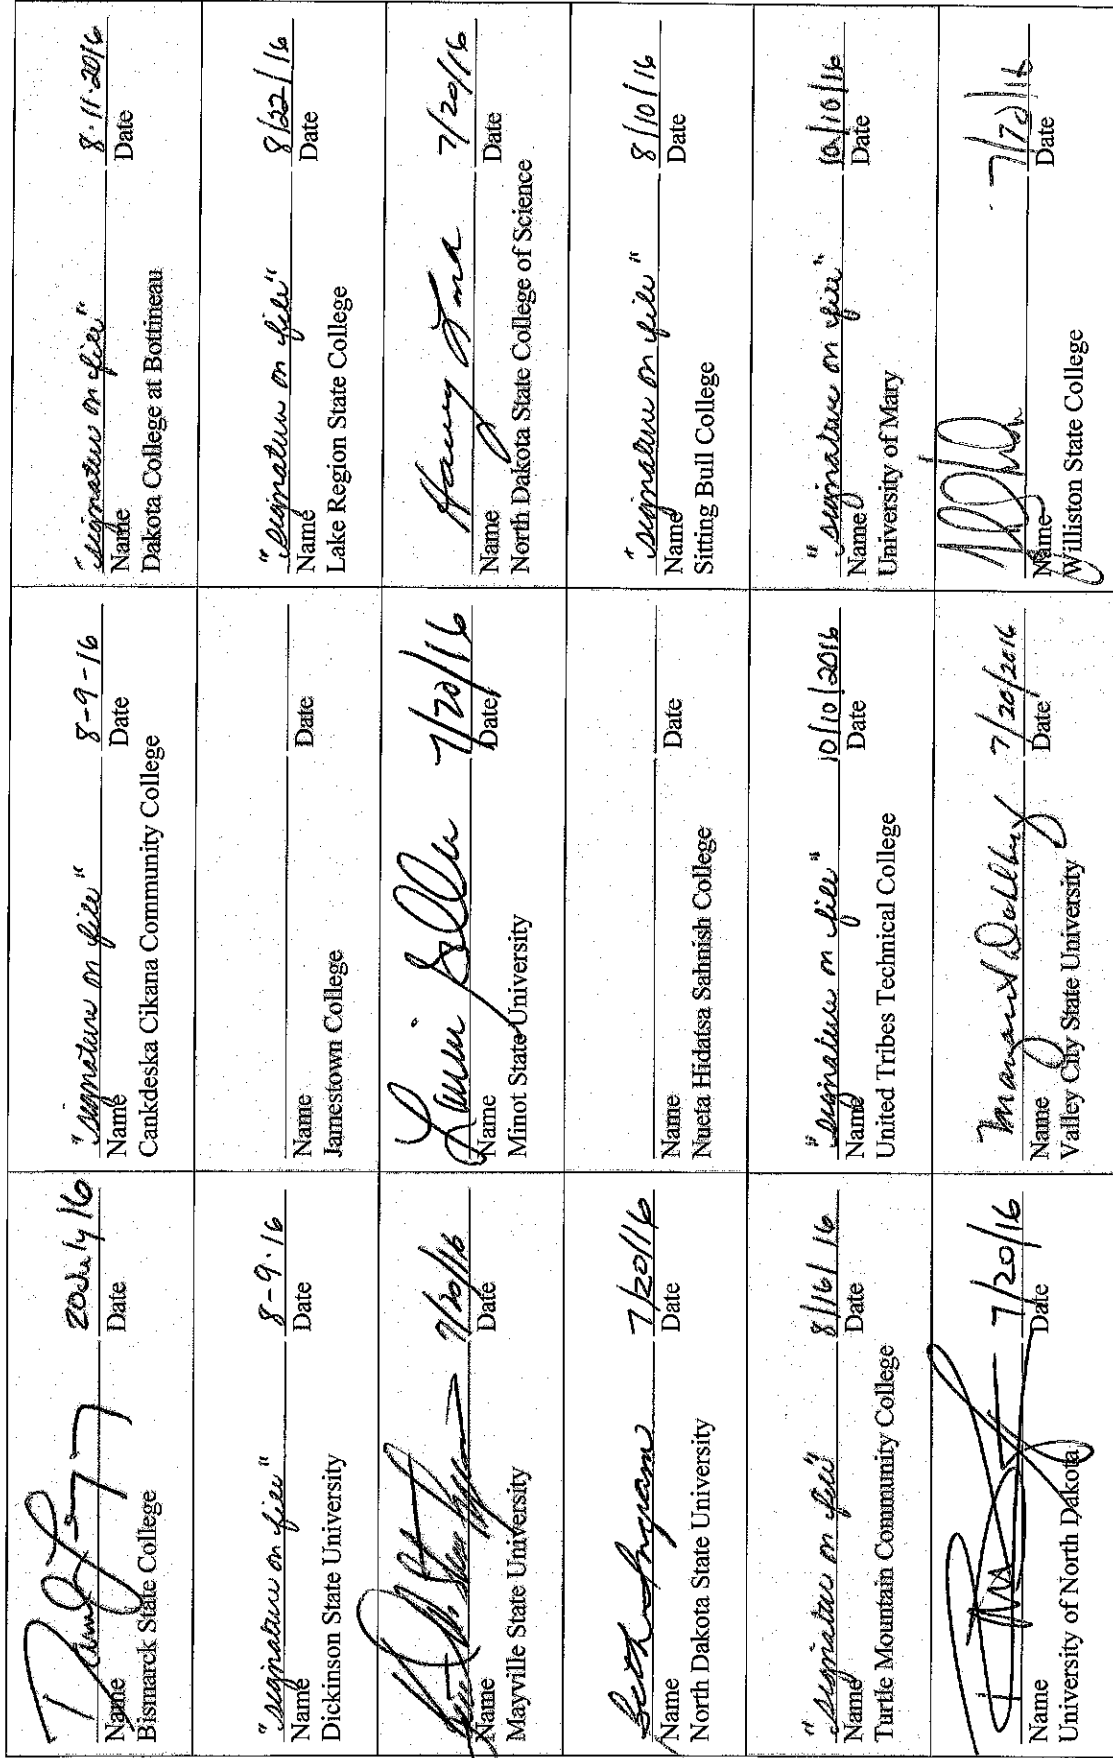 20 July 16
Name Date
Bismarck State College
"signature on file" 8-9-16
Name Date
Cankdeska Cikana Community College
"signature on file" 8-11-2016
Name Date
Dakota College at Bottineau
"signature on file" 8-9-16
Name Date
Dickinson State University
Name Date
Jamestown College
"signature on file" 8/22/16
Name Date
Lake Region State College
7/20/16
Name Date
Mayville State University
7/20/16
Name Date
Minot State University
Harvey 7/20/16
Name Date
North Dakota State College of Science
Beth Ingram 7/20/16
Name Date
North Dakota State University
Name Date
Nueta Hidatsa Sahnish College
"signature on file" 8/10/16
Name Date
Sitting Bull College
"signature on file" 8/16/16
Name Date
Turtle Mountain Community College
"signature on file" 10/10/2016
Name Date
United Tribes Technical College
"signature on file" 10/10/16
Name Date
University of Mary
7/20/16
Name Date
University of North Dakota
Margaret Dahlberg 7/20/2016
Name Date
Valley City State University
7/20/16
Name Date
Williston State College